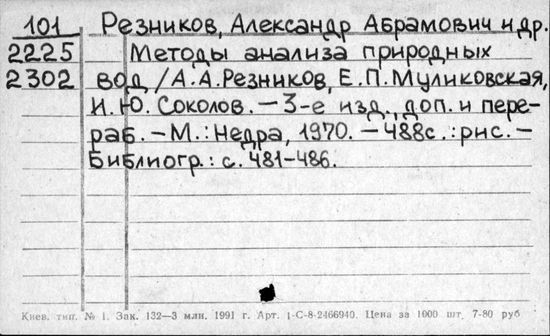 101 Резников, Александр Абрамович и др.
2225 Методы анализа природных
2302 вод / А.А.Резников, Е.П.Муликовская,
И.Ю.Соколов. – 3-е изд., доп. и пере-
раб. – М.: Недра, 1970. – 488с.: рис. –
Библиогр.: с. 481–486.
Киев. тип. № 1. Зак. 132—3 млн. 1991 г. Арт. 1-С-8-2466940. Цена за 1000 шт. 7-80 руб